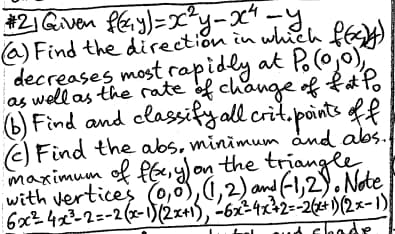 #2) Given f(x,y)=x²y-x⁴-y
(a) Find the direction in which f(x,y)
decreases most rapidly at P₀(0,0),
as well as the rate of change of f at P₀
(b) Find and classify all crit. points of f
(c) Find the abs. minimum and abs.
maximum of f(x,y) on the triangle
with vertices (0,0), (1,2) and (-1,2). Note
6x²-4x³-2=-2(x-1)(2x+1), -6x²-4x³+2=-2(x+1)(2x-1)